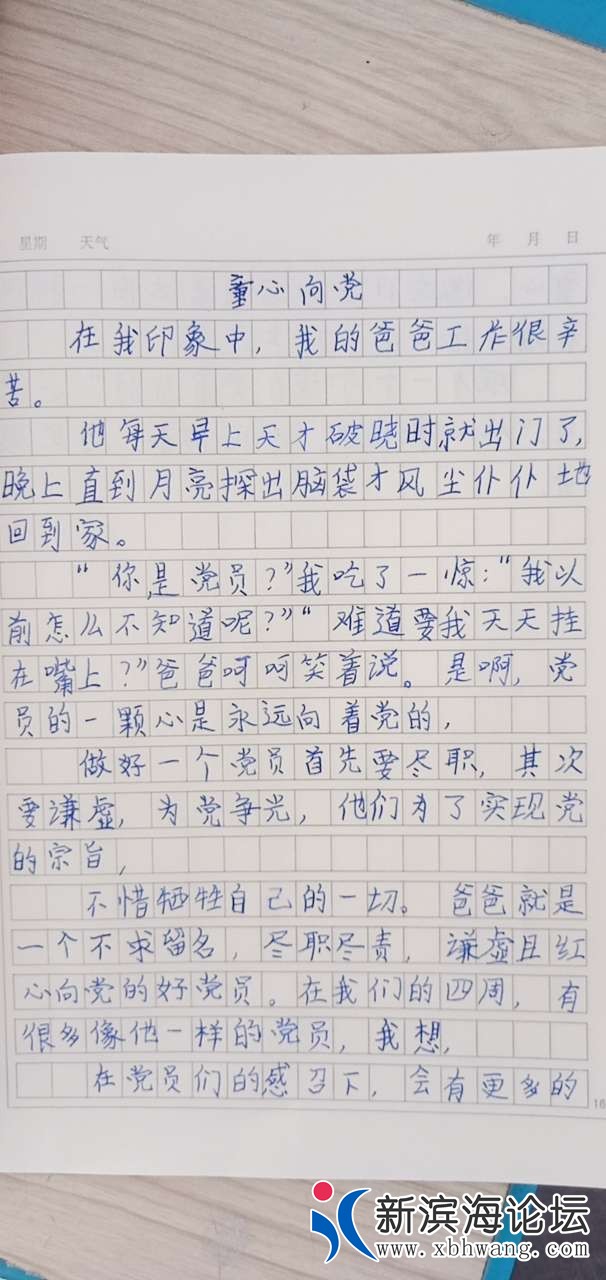 星期 天气 年 月 日
童心向党
在我印象中，我的爸爸工作很辛
苦。
他每天早上天才破晓时就出门了，
晚上直到月亮探出脑袋才风尘仆仆地
回到家。
“你是党员？”我吃了一惊：“我以
前怎么不知道呢？”“难道要我天天挂
在嘴上？”爸爸呵呵笑着说。是啊，党
员的一颗心是永远向着党的，
做好一个党员首先要尽职，其次
要谦虚，为党争光，他们为了实现党
的宗旨，
不惜牺牲自己的一切。爸爸就是
一个不求留名，尽职尽责，谦虚且红
心向党的好党员。在我们的四周，有
很多像他一样的党员，我想，
在党员们的感召下，会有更多的
16
新滨海论坛
www.xbhwang.com